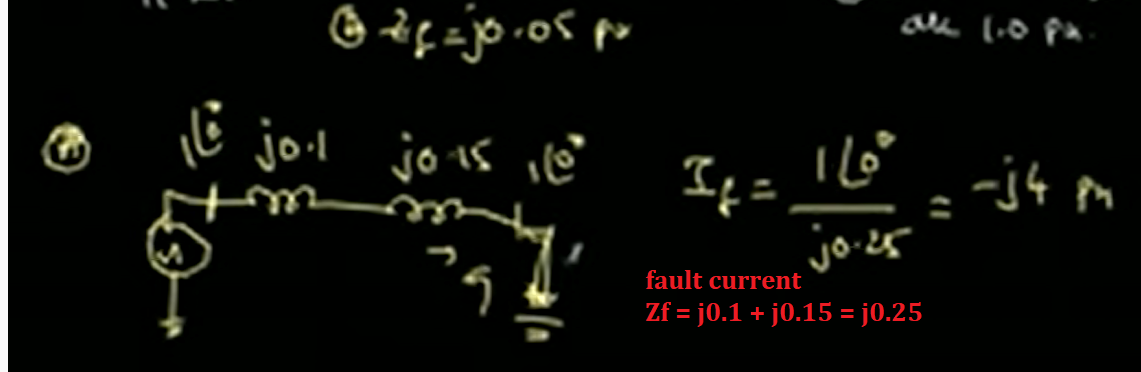 Zf = j0.05 pu
are 1.0 pu.
1∠0° j0.1 j0.15 1∠0°
If = 1∠0° / j0.25 = -j4 pu
fault current
Zf = j0.1 + j0.15 = j0.25